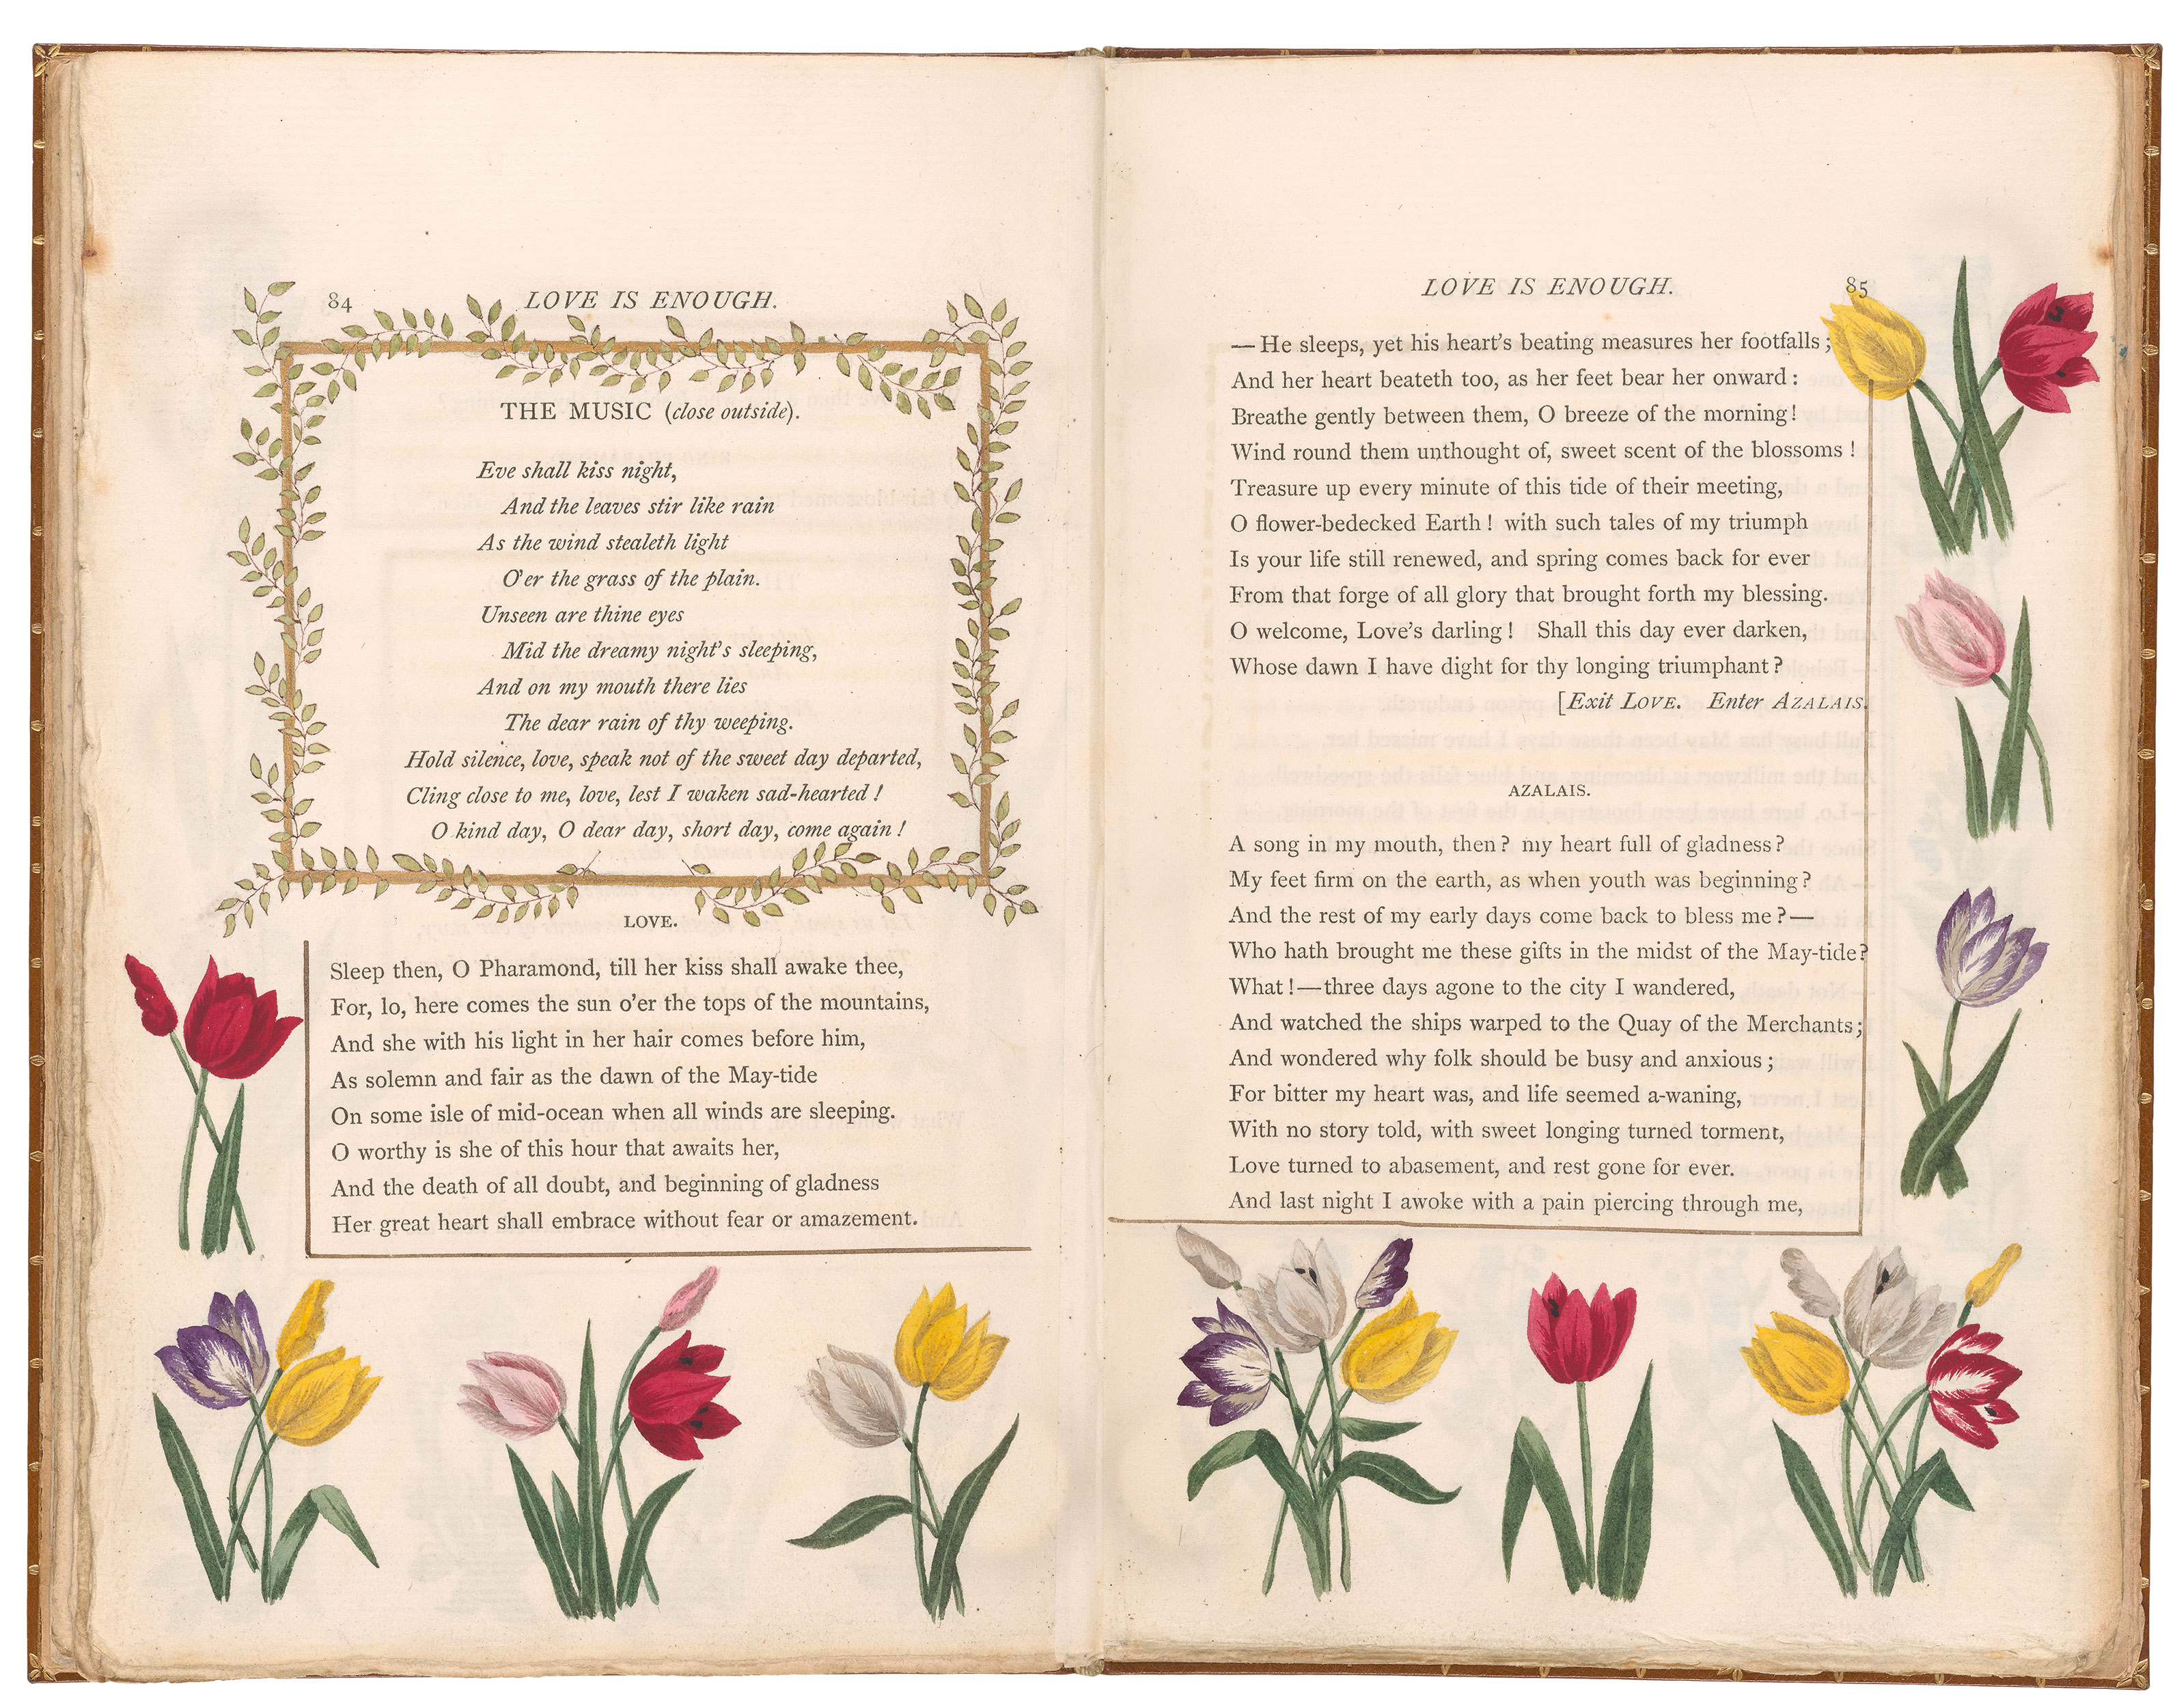 84
LOVE IS ENOUGH.
THE MUSIC (close outside).
Eve shall kiss night,
And the leaves stir like rain
As the wind stealeth light
O'er the grass of the plain.
Unseen are thine eyes
Mid the dreamy night's sleeping,
And on my mouth there lies
The dear rain of thy weeping.
Hold silence, love, speak not of the sweet day departed,
Cling close to me, love, lest I waken sad-hearted!
O kind day, O dear day, short day, come again!
LOVE.
Sleep then, O Pharamond, till her kiss shall awake thee,
For, lo, here comes the sun o'er the tops of the mountains,
And she with his light in her hair comes before him,
As solemn and fair as the dawn of the May-tide
On some isle of mid-ocean when all winds are sleeping.
O worthy is she of this hour that awaits her,
And the death of all doubt, and beginning of gladness
Her great heart shall embrace without fear or amazement.
LOVE IS ENOUGH.
85
—He sleeps, yet his heart's beating measures her footfalls;
And her heart beateth too, as her feet bear her onward:
Breathe gently between them, O breeze of the morning!
Wind round them unthought of, sweet scent of the blossoms!
Treasure up every minute of this tide of their meeting,
O flower-bedecked Earth! with such tales of my triumph
Is your life still renewed, and spring comes back for ever
From that forge of all glory that brought forth my blessing.
O welcome, Love's darling! Shall this day ever darken,
Whose dawn I have dight for thy longing triumphant?
[Exit LOVE. Enter AZALAIS.
AZALAIS.
A song in my mouth, then? my heart full of gladness?
My feet firm on the earth, as when youth was beginning?
And the rest of my early days come back to bless me?—
Who hath brought me these gifts in the midst of the May-tide?
What!—three days agone to the city I wandered,
And watched the ships warped to the Quay of the Merchants;
And wondered why folk should be busy and anxious;
For bitter my heart was, and life seemed a-waning,
With no story told, with sweet longing turned torment,
Love turned to abasement, and rest gone for ever.
And last night I awoke with a pain piercing through me,